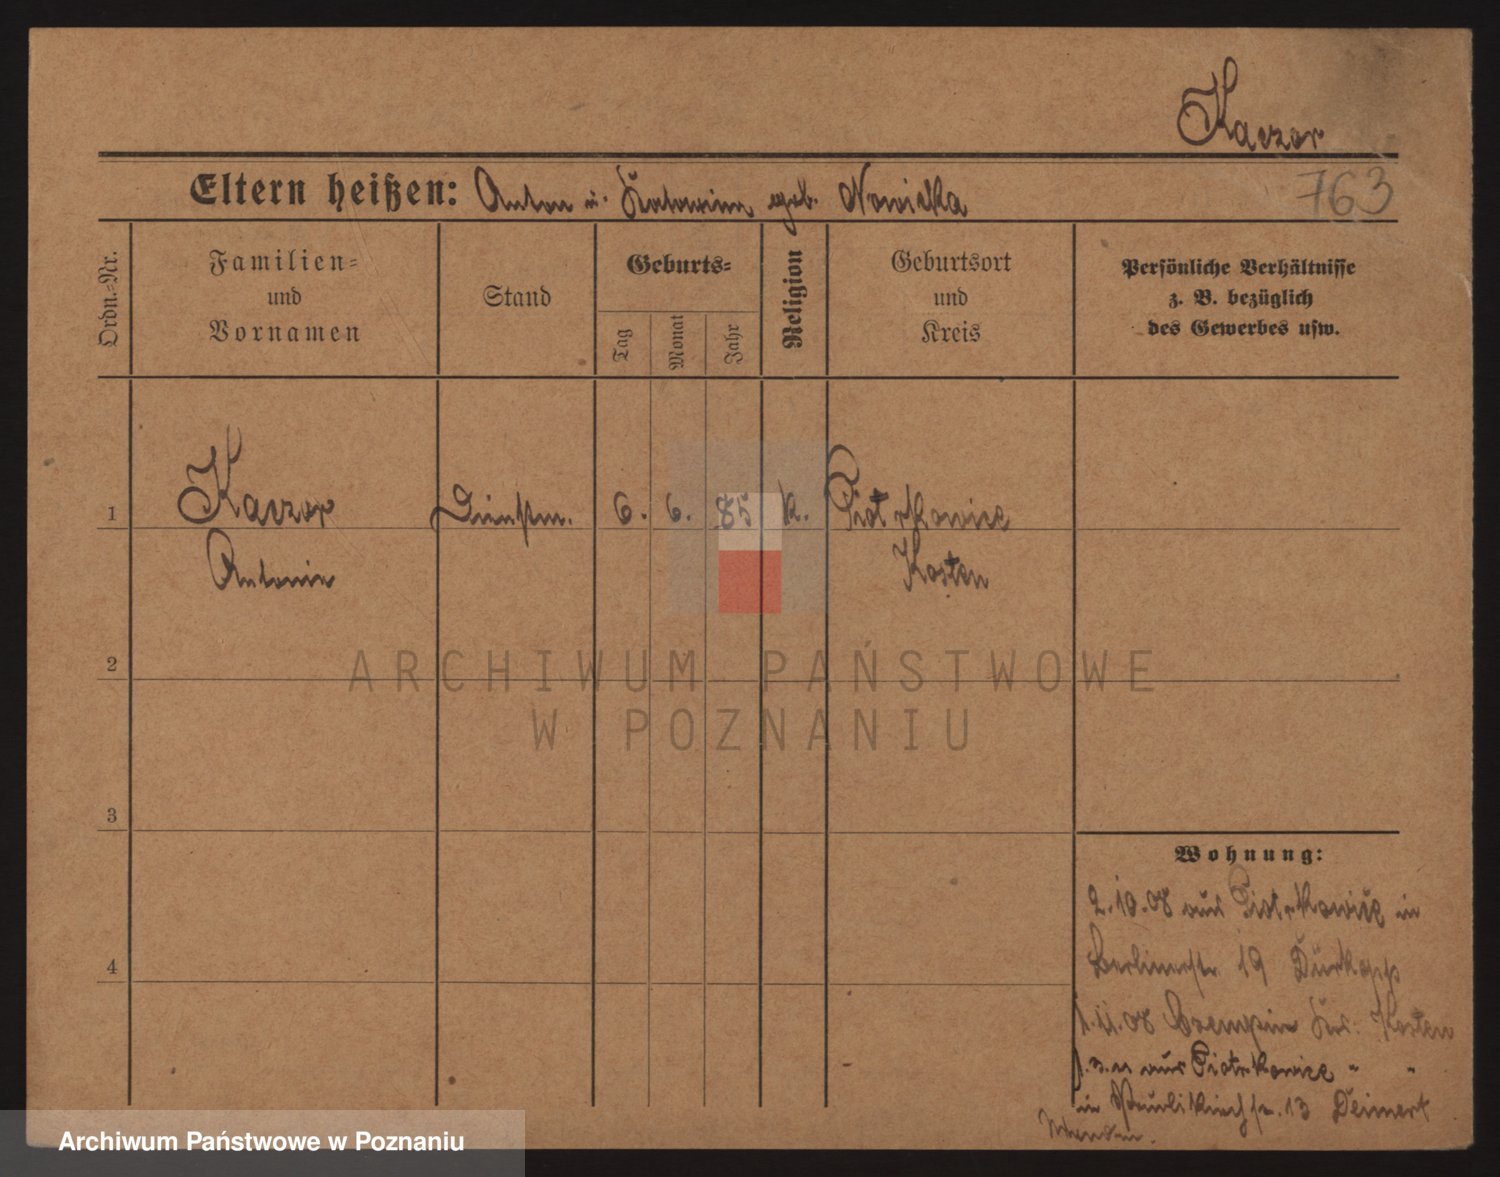 Kaczor
Eltern heißen: Anton u. Katarina geb. Nowicka
763
Ordn.-Nr.
Familien-
und
Vornamen
Stand
Geburts-
Tag
Monat
Jahr
Religion
Geburtsort
und
Kreis
Persönliche Verhältnisse
z. B. bezüglich
des Gewerbes usw.
1
Kaczor
Antonie
Dienstm.
6. 6. 85
k.
Piotrkowice
Kosten
2
3
4
Wohnung:
2.10.08 aus Piotrkowice in
Berlinerstr 19 Dürkopp
1.11.08 Czempin Krs. Kosten
1.3.11 aus Piotrkowice " "
in Paulikirchstr. 13
ARCHIWUM PAŃSTWOWE
W POZNANIU
Archiwum Państwowe w Poznaniu